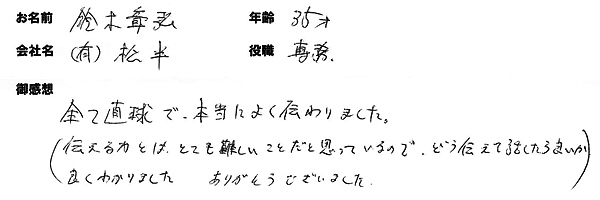 お名前 鈴木章弘 年齢 35才
会社名 (有)松半 役職 専務.
御感想
全て直球で、本当によく伝わりました。
(伝える力とは、とても難しいことだと思っているので、どう伝えて話したら良いか
良くわかりました ありがとうございました.)